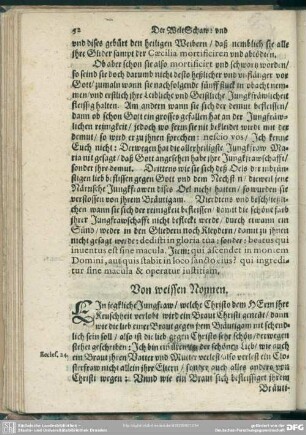 52 Der Welt Schaw: vnd
vnd dises gebürt den heiligen Weibern / daß nemblich sie alle
jhre Glider sampt der Cæcilia mortificiren vnd abtödten.
Ob aber schon sie also mortificirt vnd schwartz worden /
so seind sie doch darumb nicht desto heßlicher vnd vnflätiger vor
Gott / zumaln wann sie nachfolgende fünff stuck in obacht nemmen
/ vnd erstlich jhre Leibliche vnd Geistliche Jungkfräwlicheit
fleissig halten. Am andern wann sie sich der demut befleissen /
dann ob schon Gott ein grosses gefallen hat an der Jungkfräwlichen
reinigkeit / jedoch wo fern sie nit bekleidet würdt mit der
demut / so wird er zu jhnen sprechen: nescio vos, Ich kenne
Euch nicht: Derwegen hat die allerheiligiste Jungkfraw Maria
nit gesagt / daß Gott angesehen habe jhre Jungkfrawschafft /
sonder jhre demut. Drittens wie sie sich deß Oels der inbrünstigen
lieb befleissen gegen Gott vnd dem Nechsten / dieweil jene
Närrische Jungkfrawen dises Oel nicht hatten / so wurden sie
verstossen von jhrem Bräutigam. Vierdtens vnd beschließlichen
wann sie sich der reinigkeit befleissen / damit die schönheit
jhrer Jungkfrawschafft nicht befleckt werde / durch einerem ein
Sünd / weder in den Gliedern noch Kleydern / damit zu jhnen
nicht gesagt werde: dedistrin gloria tua / sonder: beatus qui
inuentus est sine macula. Item: qui ascendet in montem
Domini, aut quis stabit in loco sancto eius? qui ingreditur
sine macula & operatur iustitiam.
Von weissen Nonnen.
EIn jegkliche Jungfraw / welche Christo dem HErrn jhre
Keuschheit verlobt wird ein Braut Christi genent / dann
wie die lieb einer Braut gegen jhrem Bräutigam mit
sein soll / also ist die lieb gegen Christo sehr schön / derwegen
stehet geschriben: Ich bin ein der schönen Lieb / wie auch
Eccles. 24.
ein Braut jhren Vatter vnd Mutter verlest / also verlest ein Closterfraw
nicht allein jhre Eltern / sonder auch alles anders von
Christi wegen: Vnnd wie ein Braut sich befleissiget jhrem
Bräuti-